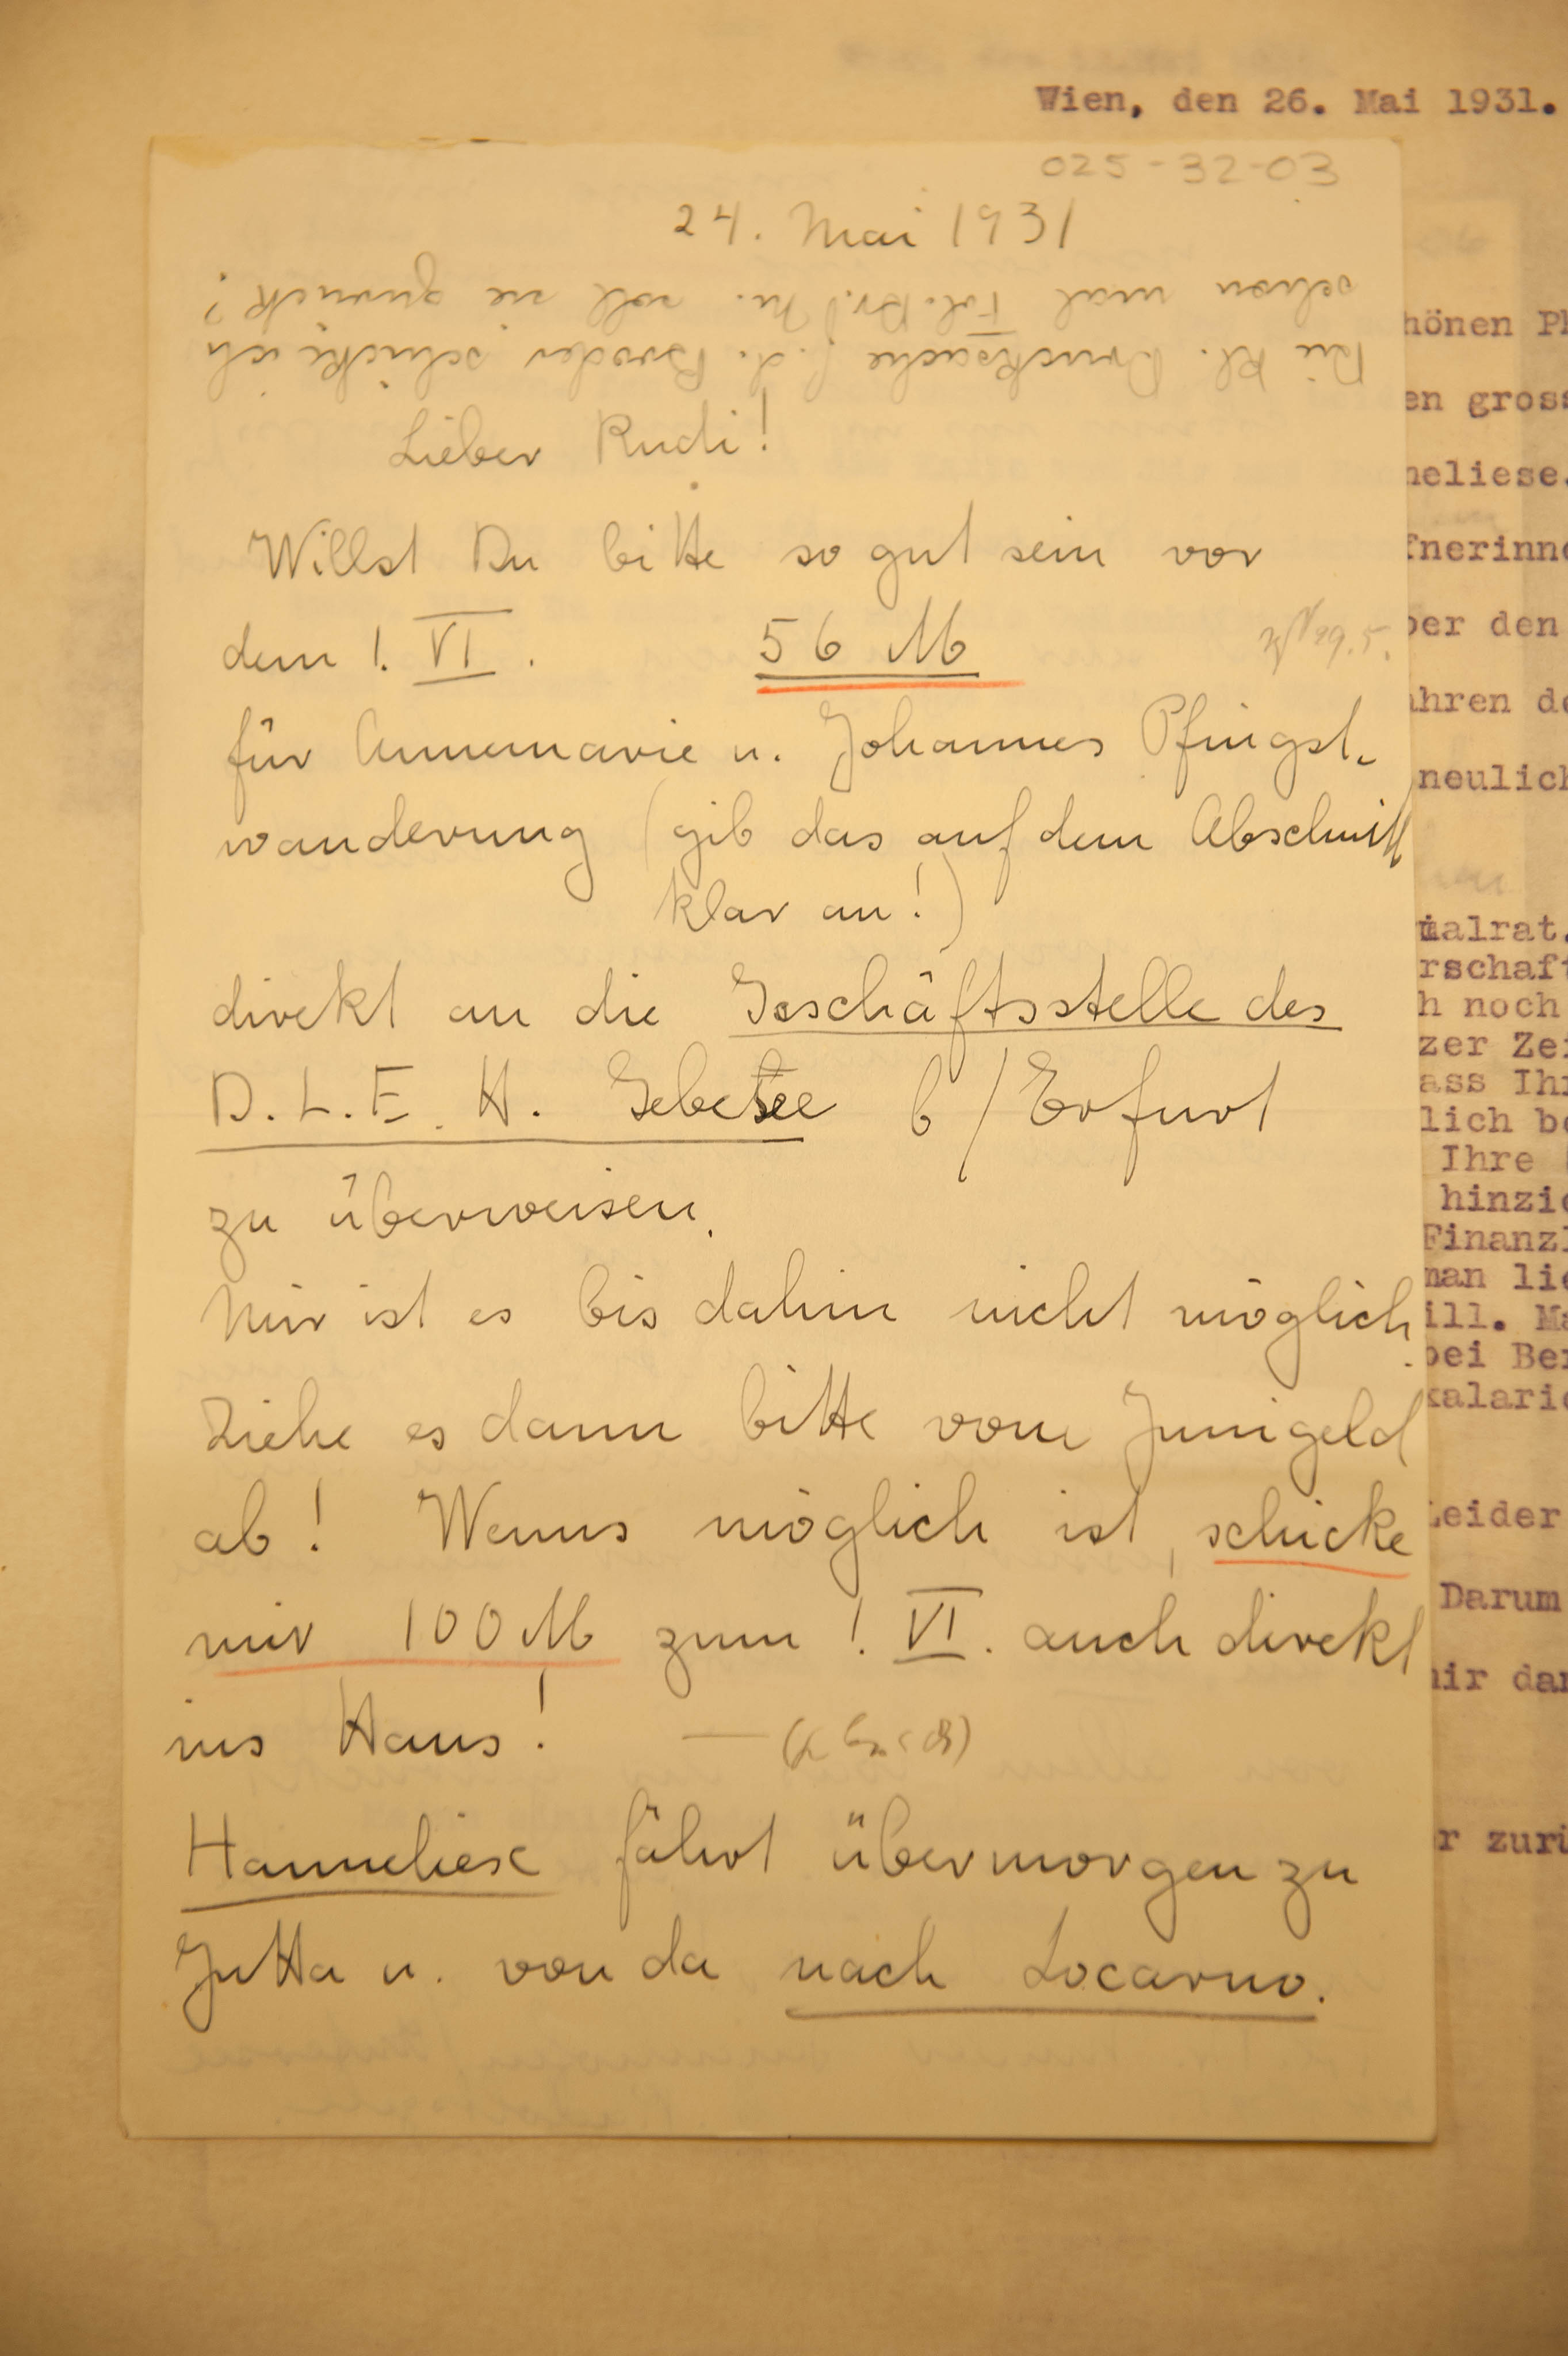 Wien, den 26. Mai 1931.
025-32-03
24. Mai 1931
Die kl. Drucksache f. d. Brüder schickte ich
schon mal soll sie zurück?
Lieber Rudi!
Willst Du bitte so gut sein vor
dem 1. VI. 56 M
29.5.
für Annemarie u. Johannes Pfingst-
wanderung (gib das auf dem Abschnitt
klar an!)
direkt an die Geschäftsstelle des
D. L. E. H. Gebesee b/Erfurt
zu überweisen.
Mir ist es bis dahin nicht möglich.
Ziehe es dann bitte vom Junigeld
ab! Wenns möglich ist, schicke
mir 100 M zum 1. VI. auch direkt
ins Haus! —
Hanneliese fährt übermorgen zu
Jutta u. von da nach Locarno.
hönen Ph
en gross
neliese.
fnerinne
ber den
ahren de
neulich
ialrat.
rschaft
h noch
zer Zei
ass Ihr
lich be
Ihre
hinzie
Finanzl
man lie
ill. Ma
bei Ber
kalarie
Leider
Darum
mir dan
r zurü